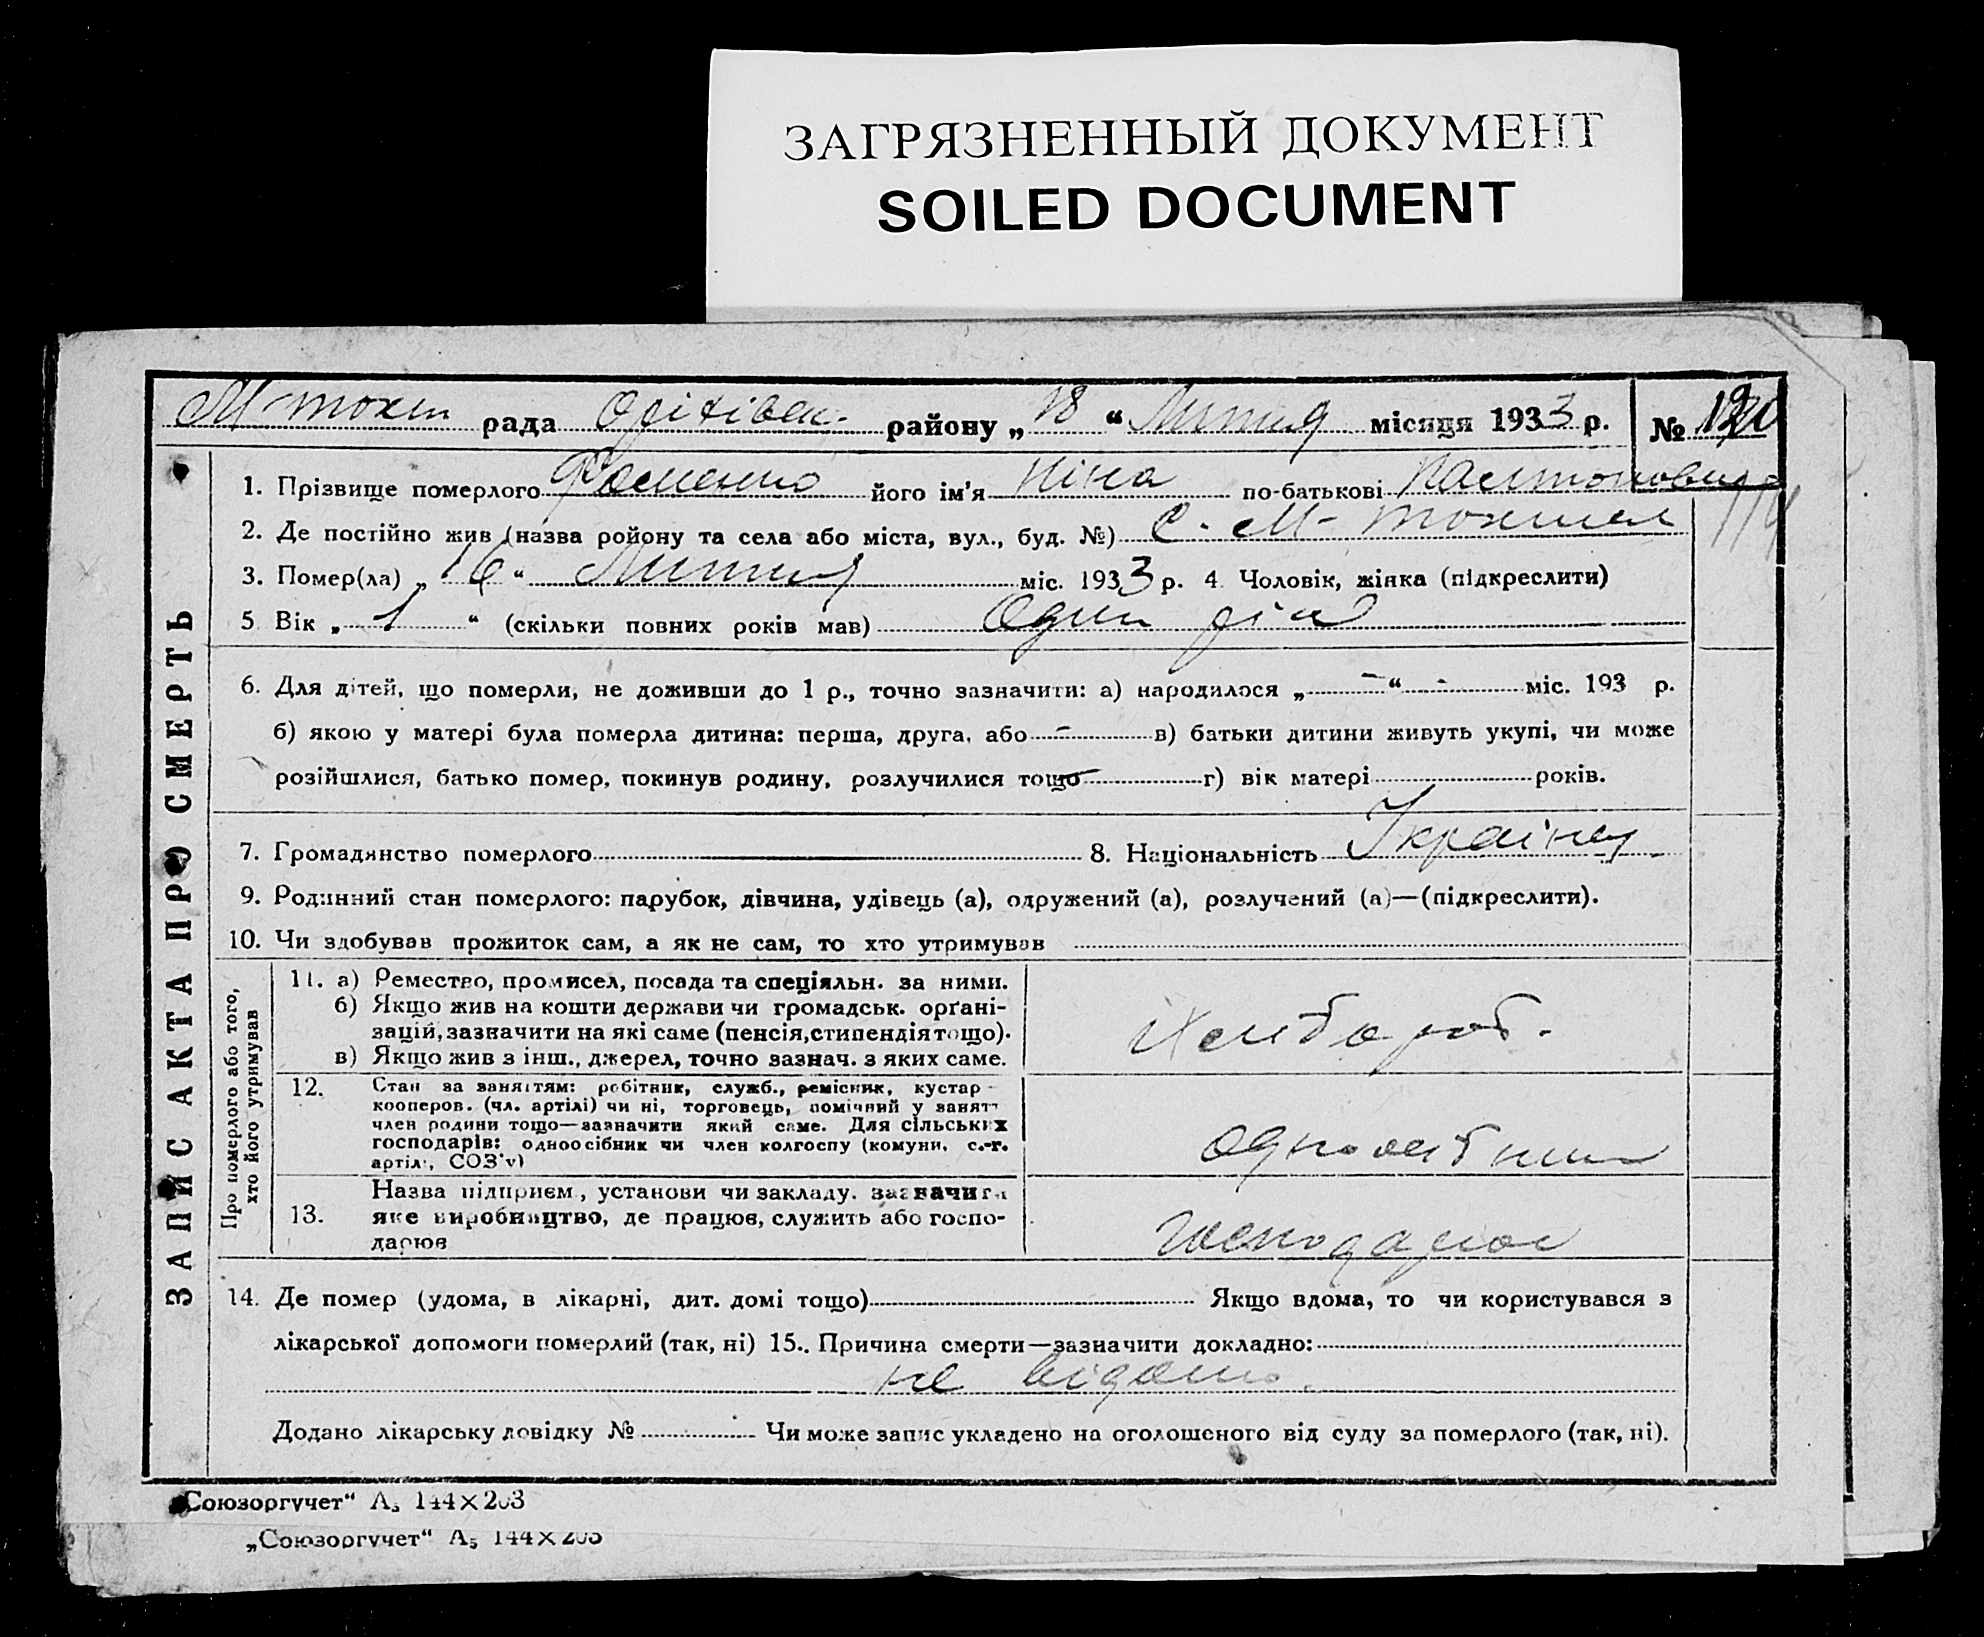 ЗАГРЯЗНЕННЫЙ ДОКУМЕНТ
SOILED DOCUMENT
М-токм рада Оріхівськ. району „18“ Липня місяця 1933 р. №
ЗАПИС АКТА ПРО СМЕРТЬ
1. Прізвище померлого Фоменко його ім'я Ніна по-батькові
2. Де постійно жив (назва ройону та села або міста, вул., буд. №) С. М-
3. Помер(ла) „16“ Липня міс. 1933 р. 4 Чоловік, жінка (підкреслити)
5 Вік „1“ (скільки повних років мав) Один рік
6. Для дітей, що померли, не доживши до 1 р., точно зазначити: а) народилося „-“ - міс. 193 р.
б) якою у матері була померла дитина: перша, друга, або - в) батьки дитини живуть укупі, чи може
розійшлися, батько помер, покинув родину, розлучилися тощо г) вік матері років.
7. Громадянство померлого 8. Національність Українец
9. Родинний стан померлого: парубок, дівчина, удівець (а), одружений (а), розлучений (а)—(підкреслити).
10. Чи здобував прожиток сам, а як не сам, то хто утримував
Про померлого або того, хто його утримував
11. а) Ремество, промисел, посада та спеціяльн. за ними.
б) Якщо жив на кошти держави чи громадськ. орґані-
зацій, зазначити на які саме (пенсія, стипендія тощо).
в) Якщо жив з інш., джерел, точно зазнач. з яких саме.
Хлібороб.
12. Стан за заняттям: робітник, служб., ремісник, кустар
кооперов. (чл. артілі) чи ні, торговець, помічний у занятт
член родини тощо—зазначити який саме. Для сільських
господарів: одноосібник чи член колгоспу (комуни, с.-г.
артіл., СОЗ'у)
одноосібник
13. Назва підприєм., установи чи закладу. зазначити
яке виробництво, де працює, служить або госпо-
дарює
14. Де помер (удома, в лікарні, дит. домі тощо) Якщо вдома, то чи користувався з
лікарської допомоги померлий (так, ні) 15.. Причина смерти—зазначити докладно:
не відомо.
Додано лікарську довідку № Чи може запис укладено на оголошеного від суду за померлого (так, ні).
„Союзоргучет“ А5 144×203
„Союзоргучет“ А5 144×203